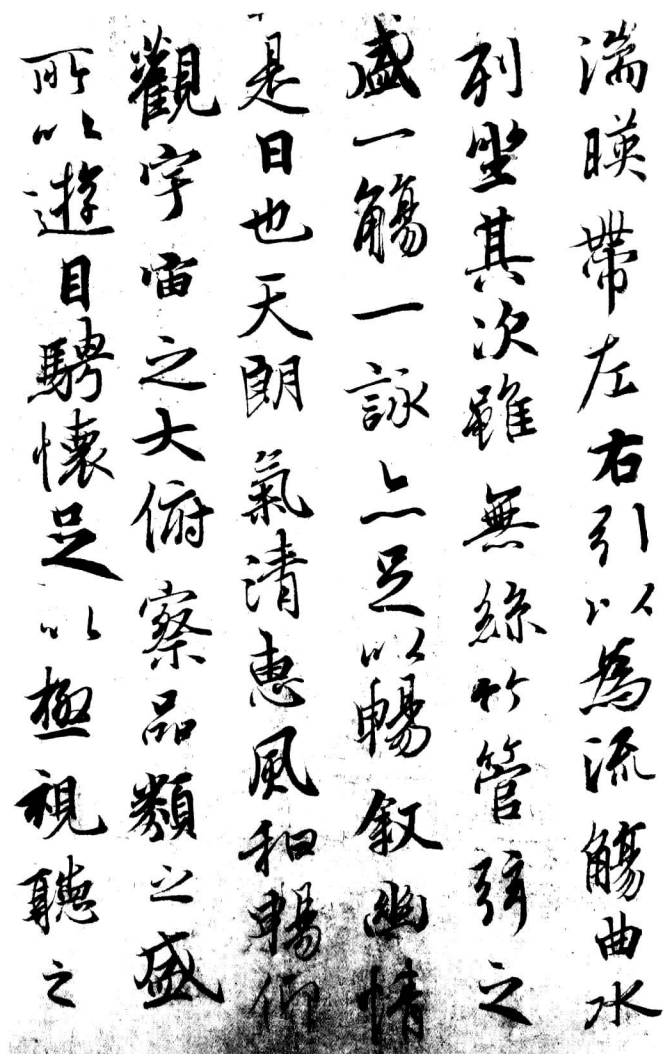 湍暎帶左右引以為流觴曲水
列坐其次雖無絲竹管弦之
盛一觴一詠亦足以暢敘幽情
是日也天朗氣清惠風和暢仰
觀宇宙之大俯察品類之盛
所以遊目騁懷足以極視聽之